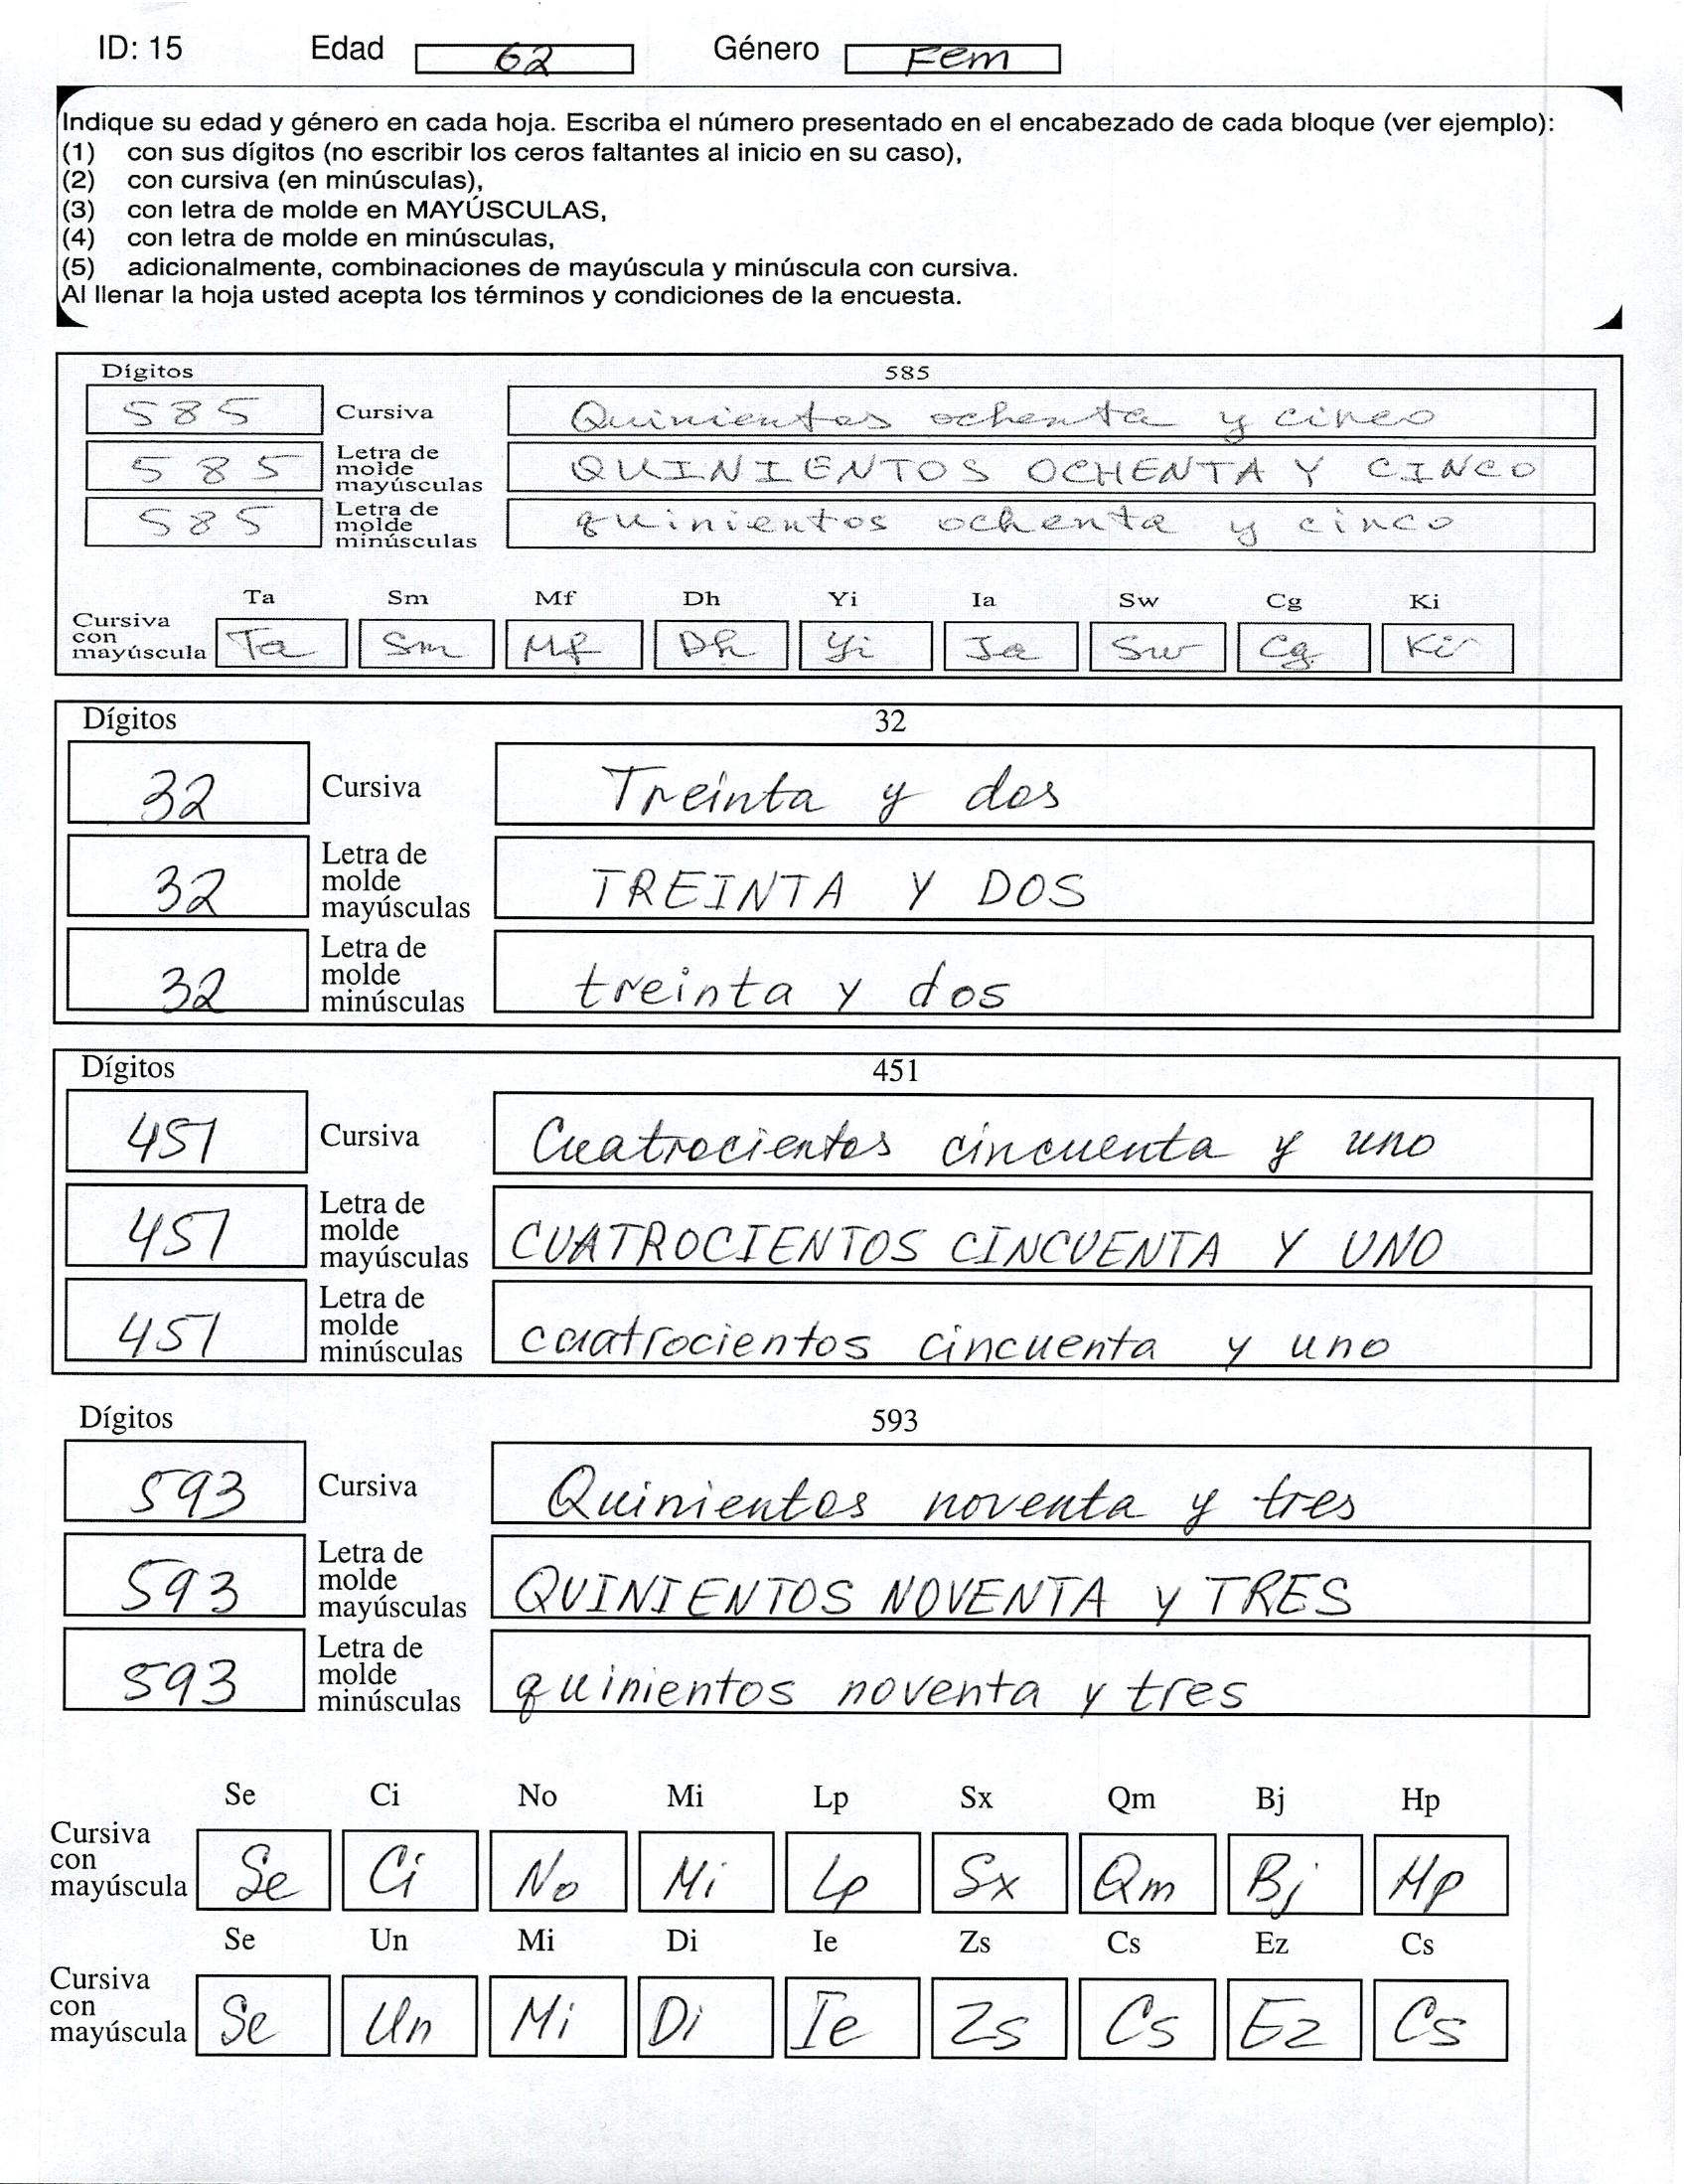 ID: 15 Edad 62 Género Fem
Indique su edad y género en cada hoja. Escriba el número presentado en el encabezado de cada bloque (ver ejemplo):
(1) con sus dígitos (no escribir los ceros faltantes al inicio en su caso),
(2) con cursiva (en minúsculas),
(3) con letra de molde en MAYÚSCULAS,
(4) con letra de molde en minúsculas,
(5) adicionalmente, combinaciones de mayúscula y minúscula con cursiva.
Al llenar la hoja usted acepta los términos y condiciones de la encuesta.
Dígitos 585
585 Cursiva Quinientos ochenta y cinco
585 Letra de molde mayúsculas QUINIENTOS OCHENTA Y CINCO
585 Letra de molde minúsculas quinientos ochenta y cinco
Ta Sm Mf Dh Yi Ia Sw Cg Ki
Cursiva con mayúscula Ta Sm Mf Dh Yi Ia Sw Cg Ki
Dígitos 32
32 Cursiva Treinta y dos
32 Letra de molde mayúsculas TREINTA Y DOS
32 Letra de molde minúsculas treinta y dos
Dígitos 451
451 Cursiva Cuatrocientos cincuenta y uno
451 Letra de molde mayúsculas CUATROCIENTOS CINCUENTA Y UNO
451 Letra de molde minúsculas cuatrocientos cincuenta y uno
Dígitos 593
593 Cursiva Quinientos noventa y tres
593 Letra de molde mayúsculas QUINIENTOS NOVENTA y TRES
593 Letra de molde minúsculas quinientos noventa y tres
Se Ci No Mi Lp Sx Qm Bj Hp
Cursiva con mayúscula Se Ci No Mi Lp Sx Qm Bj Hp
Se Un Mi Di Ie Zs Cs Ez Cs
Cursiva con mayúscula Se Un Mi Di Ie Zs Cs Ez Cs